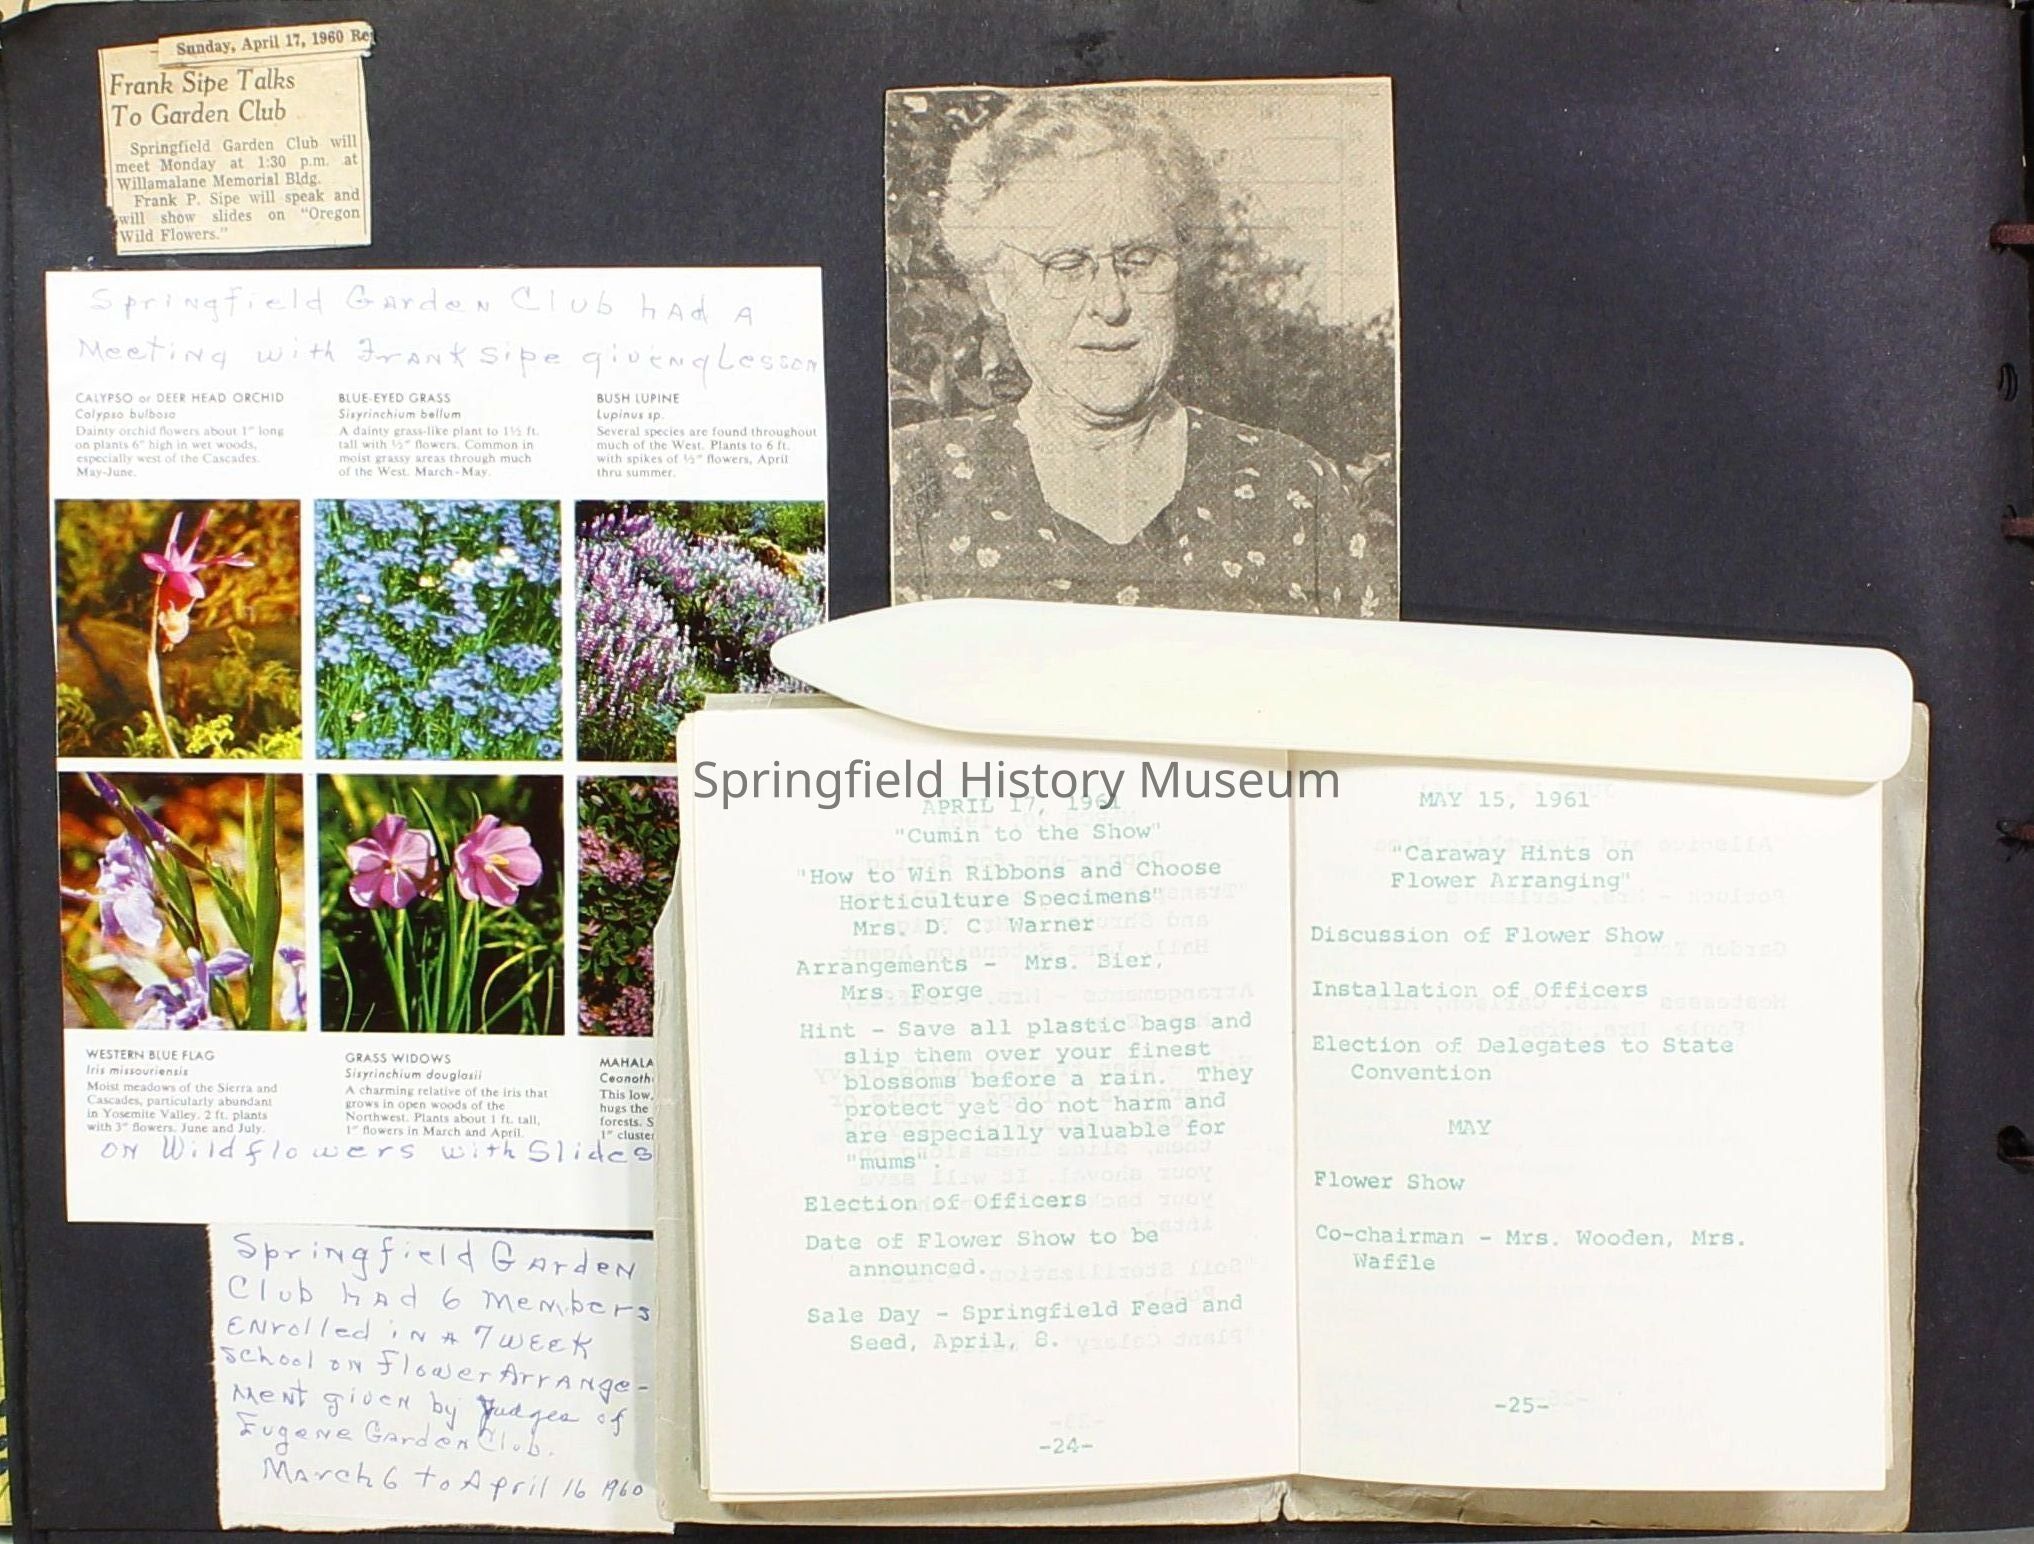 Sunday, April 17, 1960 Re
Frank Sipe Talks
To Garden Club
Springfield Garden Club will
meet Monday at 1:30 p.m. at
Willamalane Memorial Bldg.
Frank P. Sipe will speak and
will show slides on "Oregon
Wild Flowers."
Springfield Garden Club had a
Meeting with Frank Sipe giveng Lesson
CALYPSO or DEER HEAD ORCHID
Calypso bulbosa
Dainty orchid flowers about 1" long
on plants 6" high in wet woods,
especially west of the Cascades.
May-June.
BLUE-EYED GRASS
Sisyrinchium bellum
A dainty grass-like plant to 1½ ft.
tall with ½" flowers. Common in
moist grassy areas through much
of the West. March-May.
BUSH LUPINE
Lupinus sp.
Several species are found throughout
much of the West. Plants to 6 ft.
with spikes of ½" flowers, April
thru summer.
WESTERN BLUE FLAG
Iris missouriensis
Moist meadows of the Sierra and
Cascades, particularly abundant
in Yosemite Valley. 2 ft. plants
with 3" flowers. June and July.
GRASS WIDOWS
Sisyrinchium douglasii
A charming relative of the iris that
grows in open woods of the
Northwest. Plants about 1 ft. tall,
1" flowers in March and April.
MAHALA
Ceanoth
This low,
hugs the
forests. S
1" cluster
on Wildflowers with Slides
Springfield Garden
Club had 6 members
enrolled in a 7 week
School on flower Arrange-
ment given by Judges of
Eugene Garden Club.
March 6 to April 16 1960
Springfield History Museum
APRIL 17, 1961
"Cumin to the Show"
"How to Win Ribbons and Choose
Horticulture Specimens"
Mrs. D. C. Warner
Arrangements - Mrs. Bier,
Mrs. Forge
Hint - Save all plastic bags and
slip them over your finest
blossoms before a rain. They
protect yet do not harm and
are especially valuable for
"mums".
Election of Officers
Date of Flower Show to be
announced.
Sale Day - Springfield Feed and
Seed, April, 8.
-24-
MAY 15, 1961
"Caraway Hints on
Flower Arranging"
Discussion of Flower Show
Installation of Officers
Election of Delegates to State
Convention
MAY
Flower Show
Co-chairman - Mrs. Wooden, Mrs.
Waffle
-25-